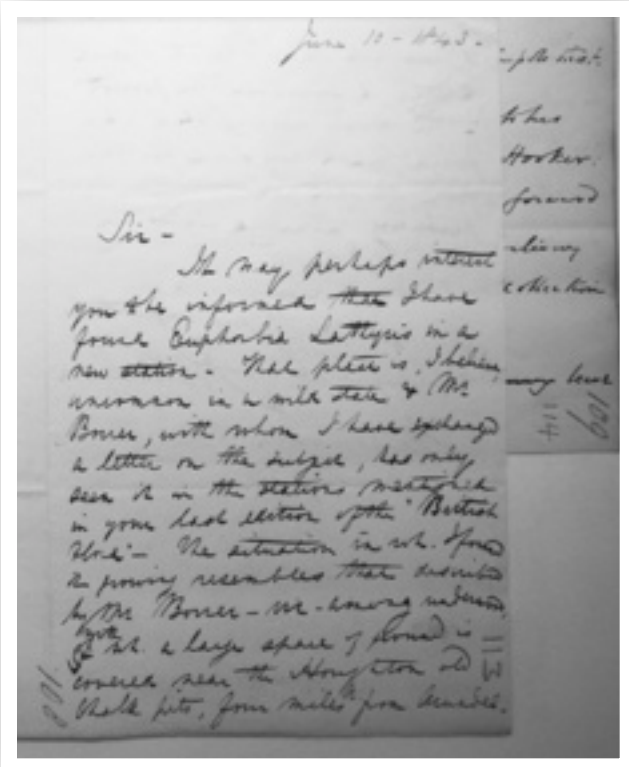 June 10 - 1843 -
Sir -
It may perhaps interest
you to be informed that I have
found Euphorbia Lathyris in a
new station - That plant is, I believe,
uncommon in a wild state & Mr.
Borrer, with whom I have exchanged
a letter on the subject, has only
seen it in the stations mentioned
in your last edition of the "British
Flora" - The situation in wh. I found
it growing resembles that described
by Mr Borrer - viz - among underwood,
with
wh. a large space of ground is
covered near the Houghton old
Chalk pits, four miles from Arundel.
has
Hooker.
forward
collection
leave
113
114
109